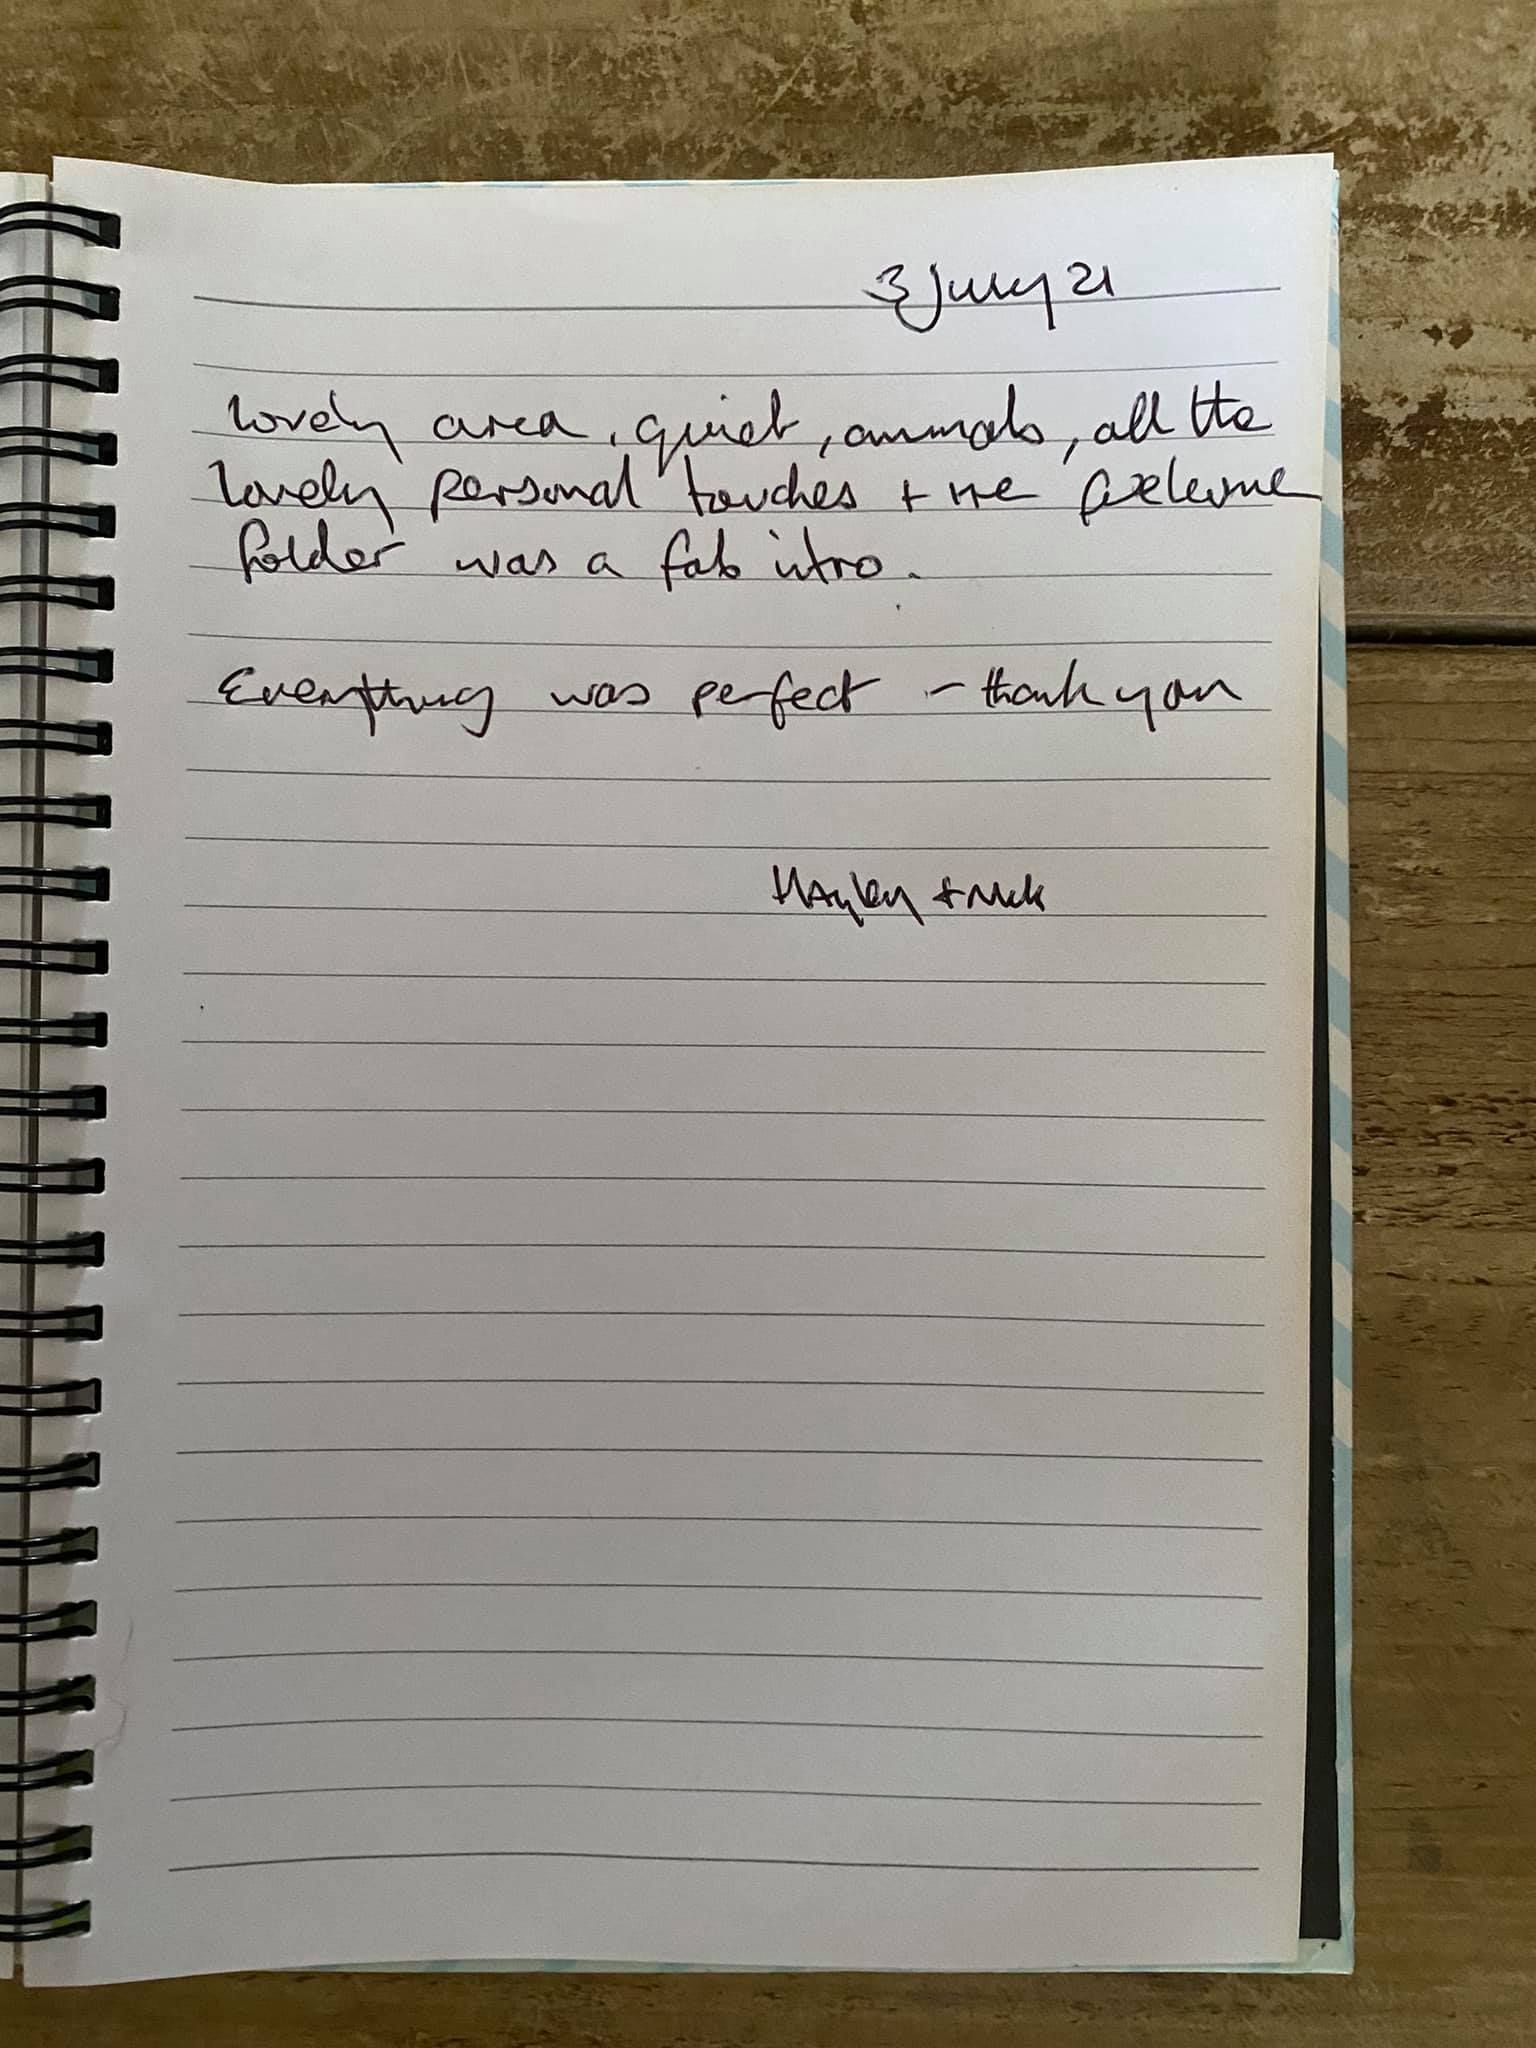 3 July 21
Lovely area, quiet, animals, all the
lovely personal touches + the welcome
folder was a fab intro.
Everything was perfect - thank you
Hayley + Nick